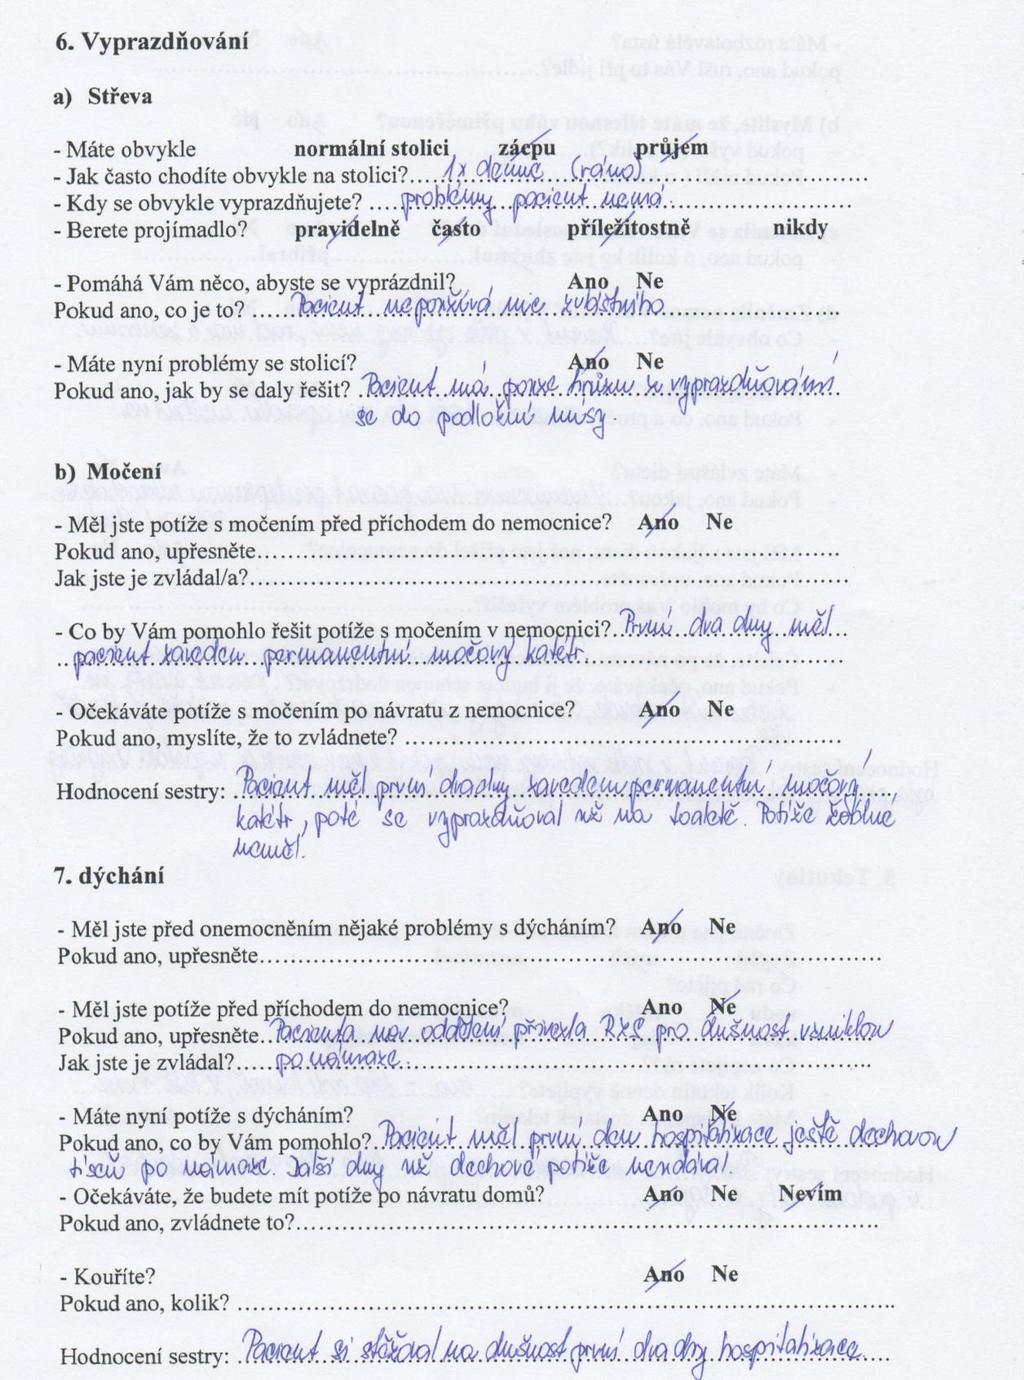 6. Vyprazdňování
a) Střeva
- Máte obvykle normální stolici zácpu průjem
- Jak často chodíte obvykle na stolici?....1x denně (ráno)
- Kdy se obvykle vyprazdňujete? ....problémy pacient nemá.
- Berete projímadlo? pravidelně často příležitostně nikdy
- Pomáhá Vám něco, abyste se vyprázdnil? Ano Ne
Pokud ano, co je to? ....Pacient nepoužívá nic zvláštního.
- Máte nyní problémy se stolicí? Ano Ne
Pokud ano, jak by se daly řešit? .Pacient má pouze hrůzu z vyprazdňování
se do podložní mísy.
b) Močení
- Měl jste potíže s močením před příchodem do nemocnice? Ano Ne
Pokud ano, upřesněte....
Jak jste je zvládal/a?....
- Co by Vám pomohlo řešit potíže s močením v nemocnici? První dva dny měl
pacient zaveden permanentní močový katétr.
- Očekáváte potíže s močením po návratu z nemocnice? Ano Ne
Pokud ano, myslíte, že to zvládnete? ....
Hodnocení sestry: ..Pacient měl první dva dny zaveden permanentní močový
katétr, poté se vyprazdňoval už na toaletě. Potíže žádné
neměl.
7. dýchání
- Měl jste před onemocněním nějaké problémy s dýcháním? Ano Ne
Pokud ano, upřesněte....
- Měl jste potíže před příchodem do nemocnice? Ano Ne
Pokud ano, upřesněte..Pacienta na oddělení přivezla RZS pro dušnost vzniklou
Jak jste je zvládal?....po námaze.
- Máte nyní potíže s dýcháním? Ano Ne
Pokud ano, co by Vám pomohlo?..Pacient měl první den hospitalizace ještě dechovou
tíseň po námaze. Další dny už dechové potíže neudával.
- Očekáváte, že budete mít potíže po návratu domů? Ano Ne Nevím
Pokud ano, zvládnete to?....
- Kouříte? Ano Ne
Pokud ano, kolik? ....
Hodnocení sestry: .Pacient si stěžoval na dušnost první dva dny hospitalizace.